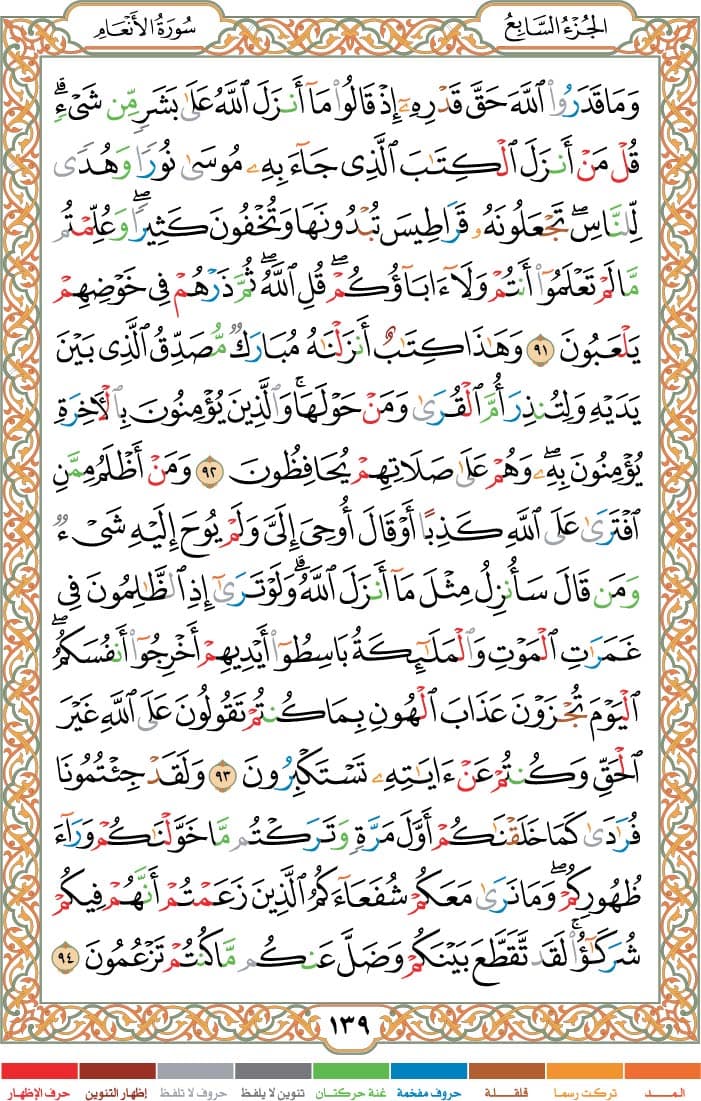 الجُزْءُ السَّابِعُ
سُورَةُ الأَنْعَامِ
وَمَا قَدَرُوا۟ ٱللَّهَ حَقَّ قَدْرِهِۦٓ إِذْ قَالُوا۟ مَآ أَنزَلَ ٱللَّهُ عَلَىٰ بَشَرٍ مِّن شَىْءٍ ۗ
قُلْ مَنْ أَنزَلَ ٱلْكِتَٰبَ ٱلَّذِى جَآءَ بِهِۦ مُوسَىٰ نُورًا وَهُدًى
لِّلنَّاسِ ۖ تَجْعَلُونَهُۥ قَرَاطِيسَ تُبْدُونَهَا وَتُخْفُونَ كَثِيرًا ۖ وَعُلِّمْتُم
مَّا لَمْ تَعْلَمُوٓا۟ أَنتُمْ وَلَآ ءَابَآؤُكُمْ ۖ قُلِ ٱللَّهُ ۖ ثُمَّ ذَرْهُمْ فِى خَوْضِهِمْ
يَلْعَبُونَ ٩١ وَهَٰذَا كِتَٰبٌ أَنزَلْنَٰهُ مُبَارَكٌ مُّصَدِّقُ ٱلَّذِى بَيْنَ
يَدَيْهِ وَلِتُنذِرَ أُمَّ ٱلْقُرَىٰ وَمَنْ حَوْلَهَا ۚ وَٱلَّذِينَ يُؤْمِنُونَ بِٱلْءَاخِرَةِ
يُؤْمِنُونَ بِهِۦ ۖ وَهُمْ عَلَىٰ صَلَاتِهِمْ يُحَافِظُونَ ٩٢ وَمَنْ أَظْلَمُ مِمَّنِ
ٱفْتَرَىٰ عَلَى ٱللَّهِ كَذِبًا أَوْ قَالَ أُوحِىَ إِلَىَّ وَلَمْ يُوحَ إِلَيْهِ شَىْءٌ
وَمَن قَالَ سَأُنزِلُ مِثْلَ مَآ أَنزَلَ ٱللَّهُ ۗ وَلَوْ تَرَىٰٓ إِذِ ٱلظَّٰلِمُونَ فِى
غَمَرَٰتِ ٱلْمَوْتِ وَٱلْمَلَٰٓئِكَةُ بَاسِطُوٓا۟ أَيْدِيهِمْ أَخْرِجُوٓا۟ أَنفُسَكُمُ ۖ
ٱلْيَوْمَ تُجْزَوْنَ عَذَابَ ٱلْهُونِ بِمَا كُنتُمْ تَقُولُونَ عَلَى ٱللَّهِ غَيْرَ
ٱلْحَقِّ وَكُنتُمْ عَنْ ءَايَٰتِهِۦ تَسْتَكْبِرُونَ ٩٣ وَلَقَدْ جِئْتُمُونَا
فُرَٰدَىٰ كَمَا خَلَقْنَٰكُمْ أَوَّلَ مَرَّةٍ وَتَرَكْتُم مَّا خَوَّلْنَٰكُمْ وَرَآءَ
ظُهُورِكُمْ ۖ وَمَا نَرَىٰ مَعَكُمْ شُفَعَآءَكُمُ ٱلَّذِينَ زَعَمْتُمْ أَنَّهُمْ فِيكُمْ
شُرَكَٰٓؤُا۟ ۚ لَقَد تَّقَطَّعَ بَيْنَكُمْ وَضَلَّ عَنكُم مَّا كُنتُمْ تَزْعُمُونَ ٩٤
١٣٩
المـــد تركت رسما قلقـــلة حروف مفخمة غنة حركتان تنوين لا يلفظ حروف لا تلفظ إظهار التنوين حرف الإظهار